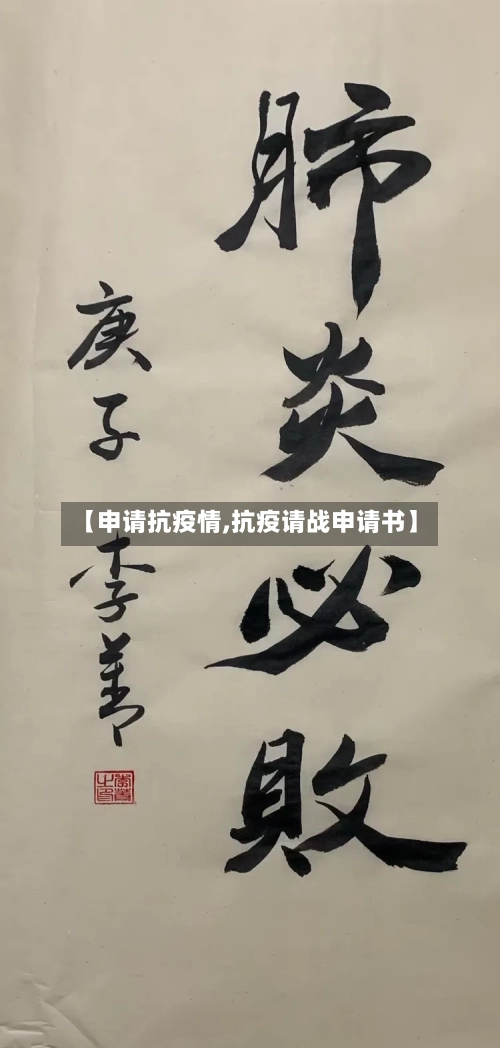 肺炎必敗
庚子 李
【申请抗疫情,抗疫请战申请书】